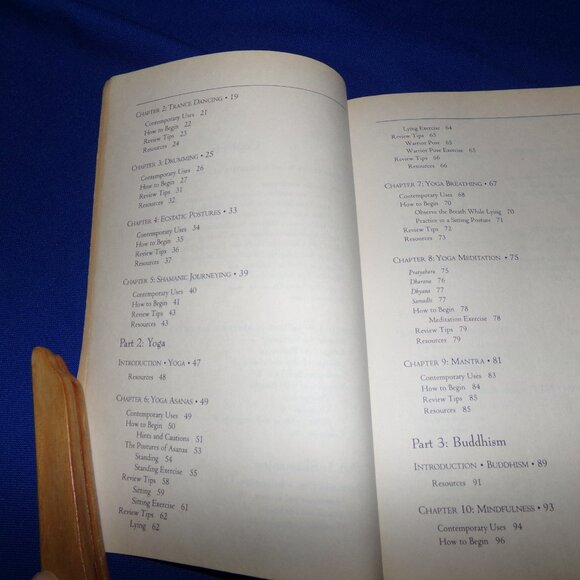 CHAPTER 2: TRANCE DANCING • 19
Contemporary Uses 21
How to Begin 22
Review Tips 23
Resources 24
CHAPTER 3: DRUMMING • 25
Contemporary Uses 26
How to Begin 27
Review Tips 31
Resources 32
CHAPTER 4: ECSTATIC POSTURES • 33
Contemporary Uses 34
How to Begin 35
Review Tips 36
Resources 37
CHAPTER 5: SHAMANIC JOURNEYING • 39
Contemporary Uses 40
How to Begin 41
Review Tips 43
Resources 43
Part 2: Yoga
INTRODUCTION • YOGA • 47
Resources 48
CHAPTER 6: YOGA ASANAS • 49
Contemporary Uses 49
How to Begin 50
Hints and Cautions 51
The Postures of Asanas 53
Standing 54
Standing Exercise 55
Review Tips 58
Sitting 59
Sitting Exercise 61
Review Tips 62
Lying 62
Lying Exercise 64
Review Tips 65
Warrior Pose 65
Warrior Pose Exercise 65
Review Tips 66
Resources 66
CHAPTER 7: YOGA BREATHING • 67
Contemporary Uses 68
How to Begin 70
Observe the Breath While Lying 70
Practice in a Sitting Posture 71
Review Tips 72
Resources 73
CHAPTER 8: YOGA MEDITATION • 75
Pratyahara 75
Dharana 76
Dhyana 77
Samadhi 77
How to Begin 78
Meditation Exercise 78
Review Tips 79
Resources 79
CHAPTER 9: MANTRA • 81
Contemporary Uses 83
How to Begin 84
Review Tips 85
Resources 85
Part 3: Buddhism
INTRODUCTION • BUDDHISM • 89
Resources 91
CHAPTER 10: MINDFULNESS • 93
Contemporary Uses 94
How to Begin 96